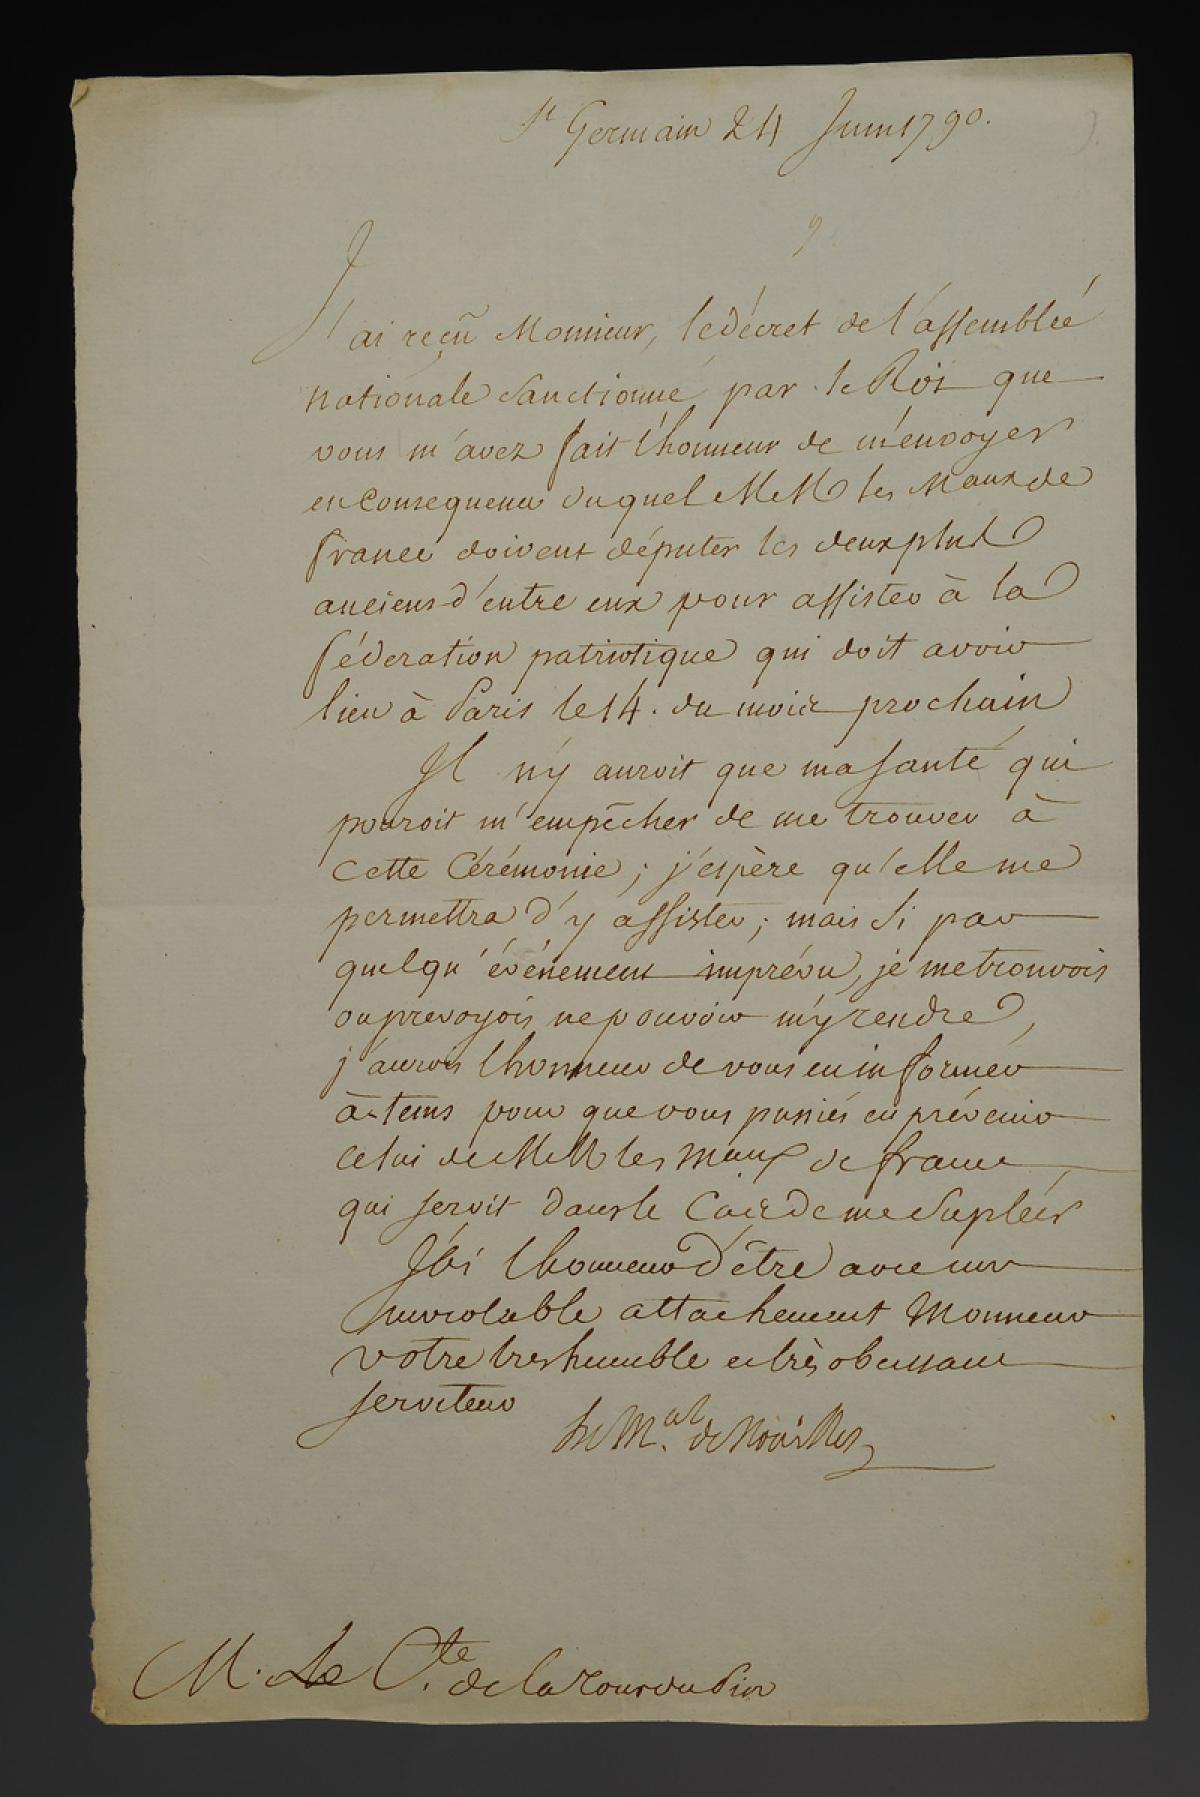 St Germain 24 Juin 1790.
J'ai reçu Monsieur, le décret de l'assemblée
nationale Sanctionné par le Roi que
vous m'avez fait l'honneur de m'envoyer
en Consequence duquel MM les Maux de
france doivent députer les deux plus
anciens d'entre eux pour assister à la
féderation patriotique qui doit avoir
lieu à Paris le 14. du mois prochain
Il n'y auroit que ma santé qui
pouroit m'empêcher de me trouver à
cette Cérémonie; j'espère qu'elle me
permettra d'y assister; mais Si par
quelqu'événement imprévu, je me trouvois
ou prevoyois ne pouvoir m'y rendre,
j'aurois l'honneur de vous en informer
à tems pour que vous puissiés en prévenir
celui de MM les Maux de france
qui seroit dans le Cas de me Supléer
J'ai l'honneur d'être avec un
inviolable attachement Monsieur
votre tres humble et très obeissant
serviteur
Le M.al de Noailles
M. Le C.te de la Tour du Pin